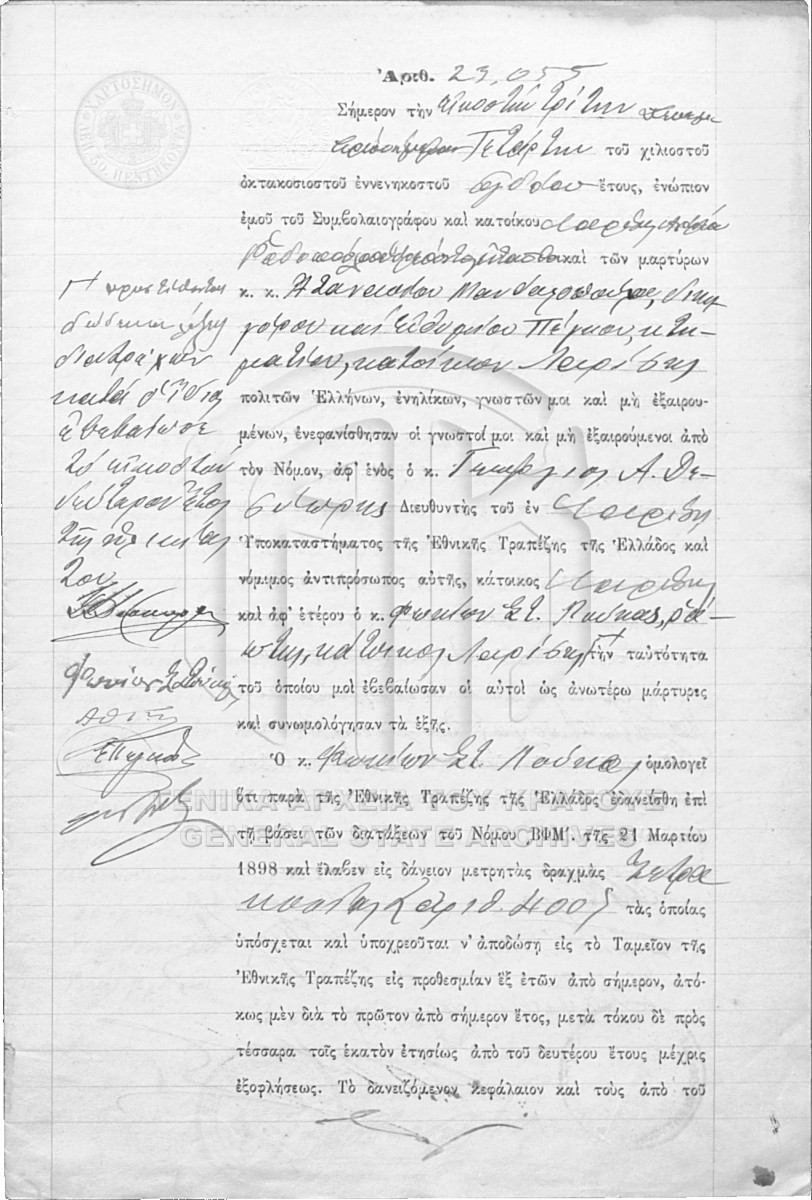 Ἀριθ. 23,055
Σήμερον τὴν εἰκοστὴν τρίτην
Τετάρτην τοῦ χιλιοστοῦ
ὀκτακοσιοστοῦ ἐννενηκοστοῦ ὀγδόου ἔτους, ἐνώπιον
ἐμοῦ τοῦ Συμβολαιογράφου καὶ κατοίκου Λαρίσης
καὶ τῶν μαρτύρων
κ. κ.
καὶ Εὐθυμίου κτη-
ματίου, κατοίκων Λαρίσης
πολιτῶν Ἑλλήνων, ἐνηλίκων, γνωστῶν μοι καὶ μὴ ἐξαιρου-
μένων, ἐνεφανίσθησαν οἱ γνωστοί μοι καὶ μὴ ἐξαιρούμενοι ἀπὸ
τὸν Νόμον, ἀφ' ἑνὸς ὁ κ. Γεώργιος Α.
Διευθυντὴς τοῦ ἐν Λαρίσῃ
Ὑποκαταστήματος τῆς Ἐθνικῆς Τραπέζης τῆς Ἑλλάδος καὶ
νόμιμος ἀντιπρόσωπος αὐτῆς, κάτοικος Λαρίσης
καὶ ἀφ' ἑτέρου ὁ κ. Φωκίων Στ. Λούκας, ῥά-
πτης, κάτοικος Λαρίσης τὴν ταὐτότητα
τοῦ ὁποίου μοὶ ἐβεβαίωσαν οἱ αὐτοὶ ὡς ἀνωτέρω μάρτυρες
καὶ συνωμολόγησαν τὰ ἑξῆς.
Ὁ κ. Φωκίων Στ. Λούκας ὁμολογεῖ
ὅτι παρὰ τῆς Ἐθνικῆς Τραπέζης τῆς Ἑλλάδος ἐδανείσθη ἐπὶ
τῇ βάσει τῶν διατάξεων τοῦ Νόμου ͵ΒΦΜ΄. τῆς 21 Μαρτίου
1898 καὶ ἔλαβεν εἰς δάνειον μετρητὰς δραχμὰς τετρα
κοσίας ἀριθ. 400 τὰς ὁποίας
ὑπόσχεται καὶ ὑποχρεοῦται ν' ἀποδώσῃ εἰς τὸ Ταμεῖον τῆς
Ἐθνικῆς Τραπέζης εἰς προθεσμίαν ἓξ ἐτῶν ἀπὸ σήμερον, ἀτό-
κως μὲν διὰ τὸ πρῶτον ἀπὸ σήμερον ἔτος, μετὰ τόκου δὲ πρὸς
τέσσαρα τοῖς ἑκατὸν ἐτησίως ἀπὸ τοῦ δευτέρου ἔτους μέχρις
ἐξοφλήσεως. Τὸ δανειζόμενον κεφάλαιον καὶ τοὺς ἀπὸ τοῦ
ἐβεβαίωσε
τὸ εἰκοστὸν
δεύτερον ἔτος
τῆς ἡλικίας
του
ΧΑΡΤΟΣΗΜΟΝ
ΓΕΝΙΚΑ ΑΡΧΕΙΑ ΤΟΥ ΚΡΑΤΟΥΣ
GENERAL STATE ARCHIVES